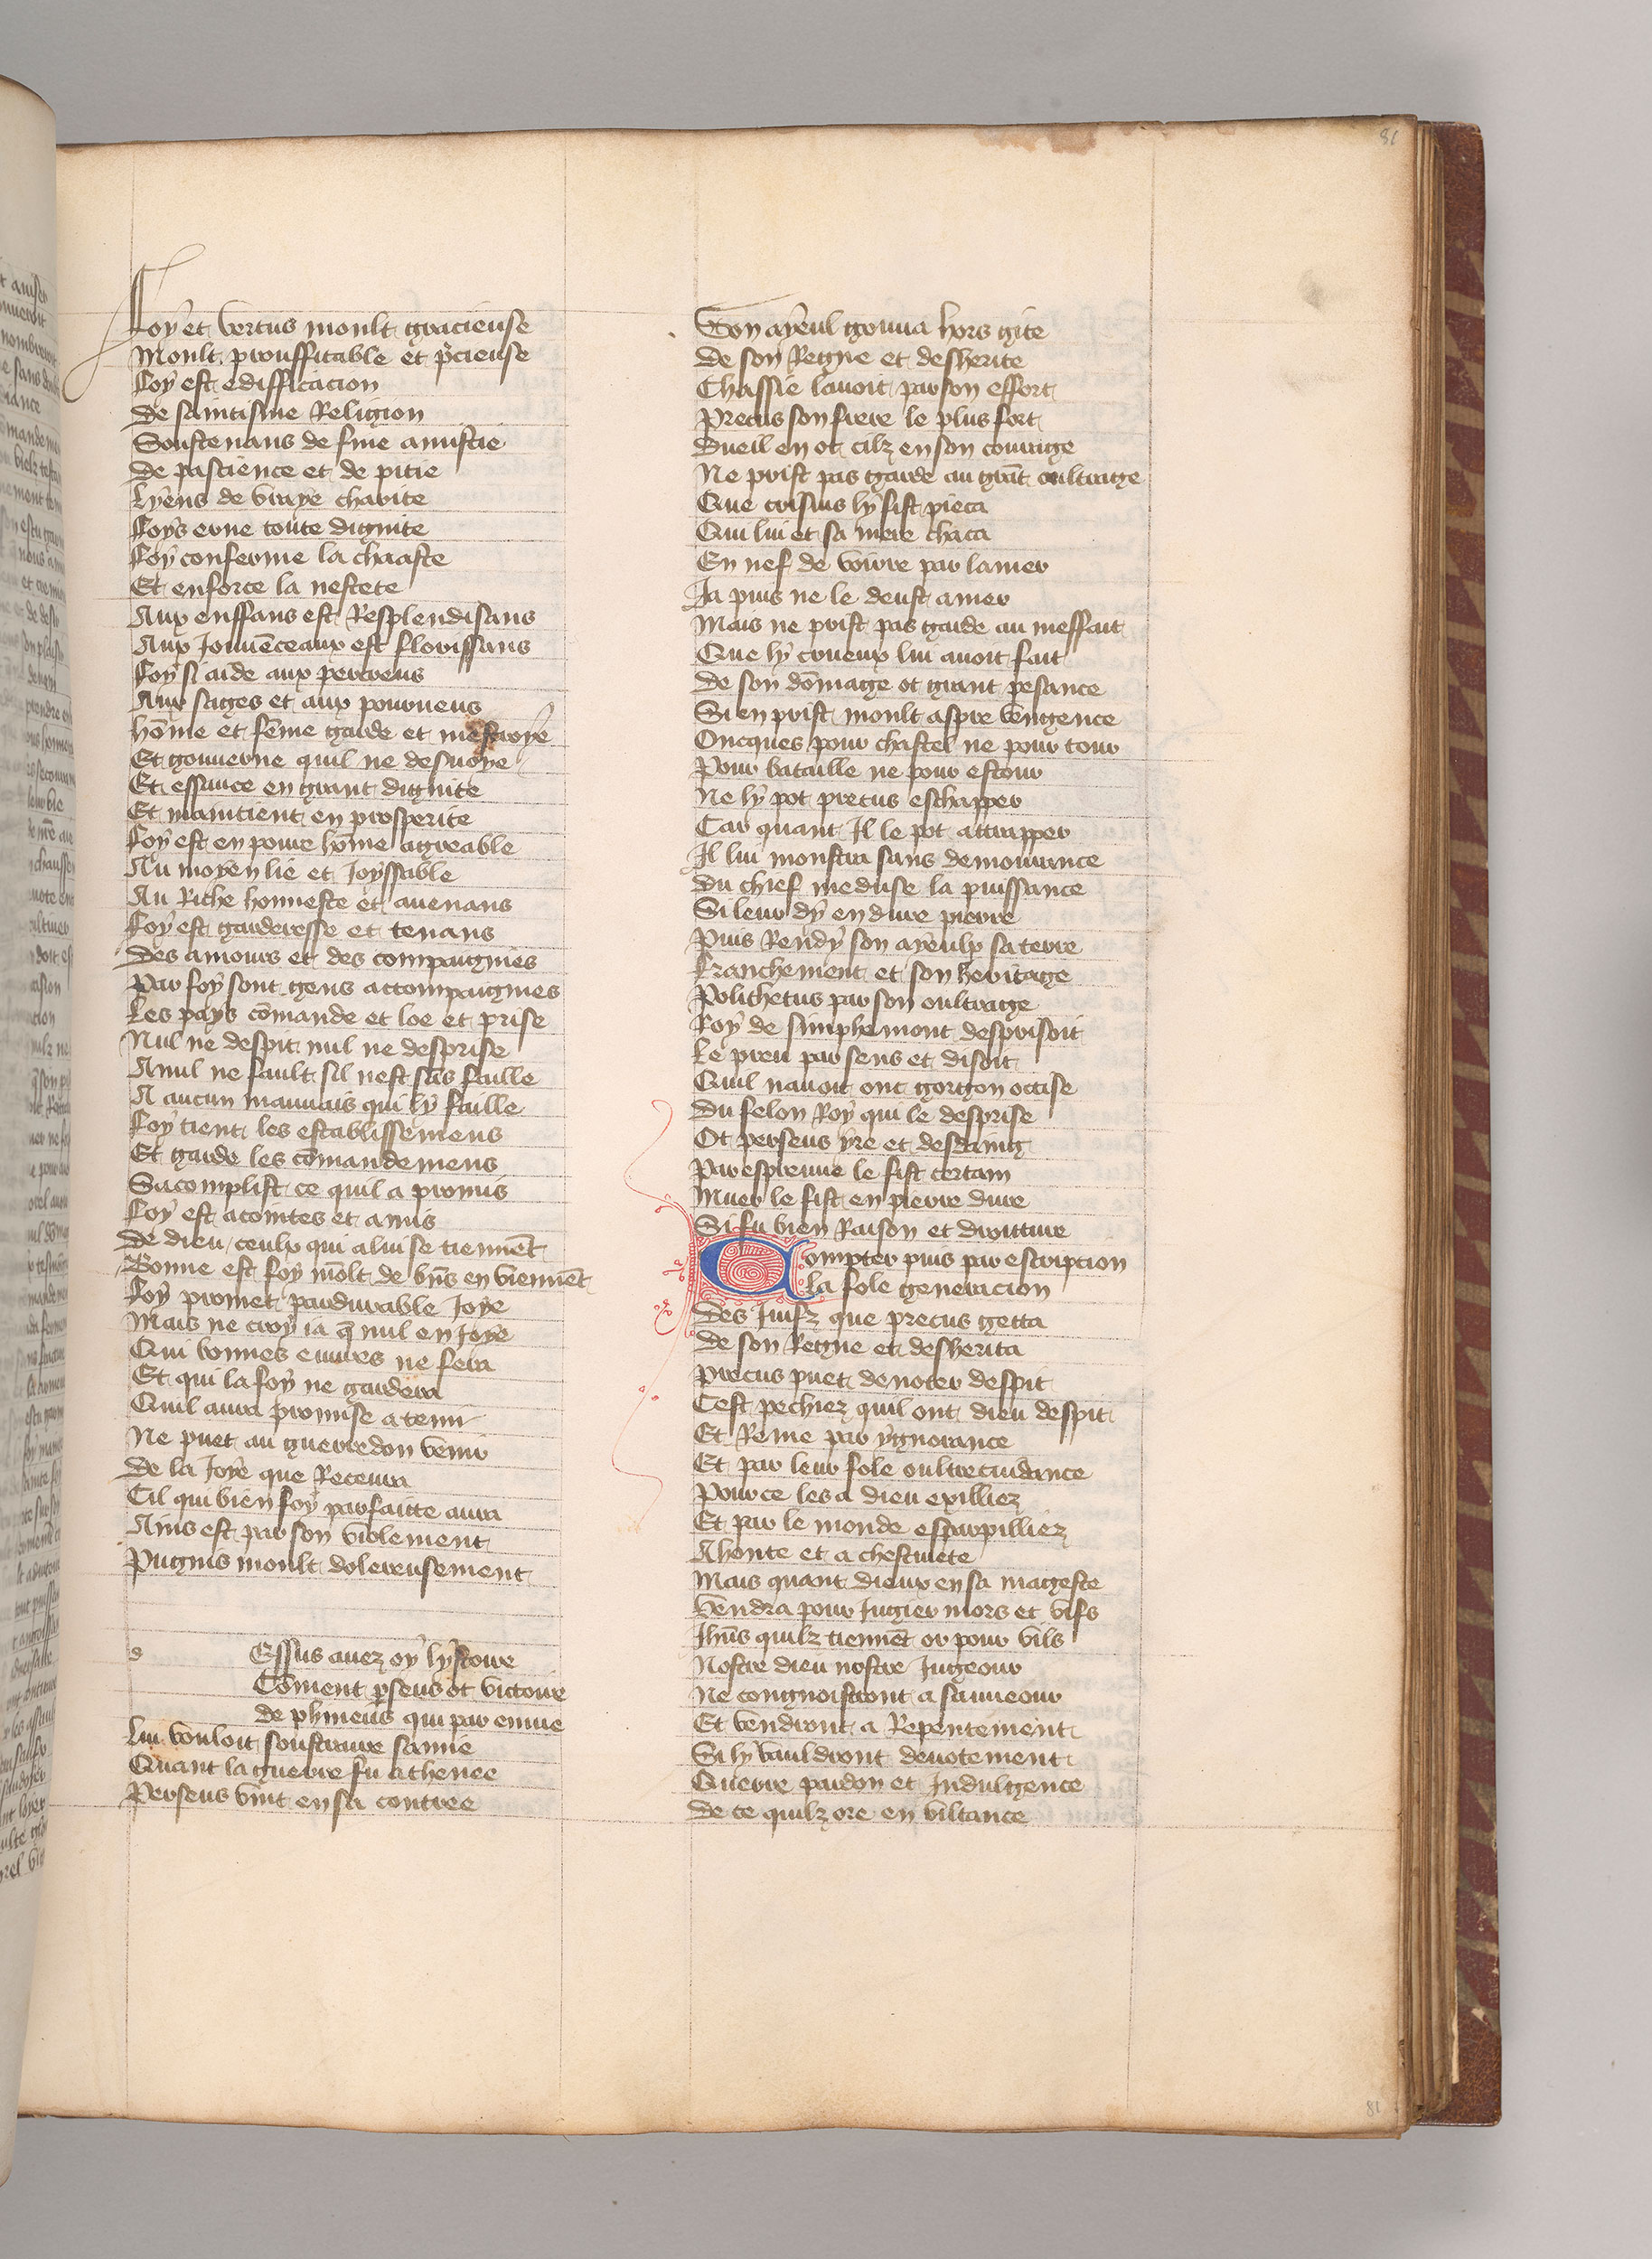 81
Foy et vertus moult gracieuse
Moult prouffitable et p̃cieuse
Foy est edifficacion
De saintisme Religion
Soustenans de fine amistie
De pascience et de pitie
Lyens de vraye charite
Foys erne toute dignite
Foy conferme la chaaste
Et enforce la nestete
Aux enffans est Resplendisans
Aux Jouuẽceaux est florissans
Foy si aide aux perceus
Aux sages et aux pourueus
hõme et fẽme garde et mestroye
Et gouuerne quil ne desuoye
Et essauce en grant dignite
Et maintient en prosperite
Foy est en poure hõme agreable
Au moyen lie et Joyssable
Au Riche honneste et auenans
Foy est garderesse et tenans
Des amours et des compaignies
Par foy sont gens accompaignies
Les pays cõmande et loe et prise
Nul ne despit nul ne desprise
A nul ne fault sil nest sãs faille
A aucun mauuais qui ly faille
Foy tient les establissemens
Et garde les cõmandemens
Sacomplist ce quil a promis
Foy est acointes et amis
De dieu ceulx qui a lui se tiennẽt
Bonne est foy mõlt de bñs en viennẽt
Foy promet pardurable Joye
Mais ne croy ia q̃ nul en Joye
Qui bonnes euures ne fera
Et qui la foy ne gardera
Quil aura promise a tenir
Ne puet au guerredon venir
De la Joye que Receura
Cil qui bien foy parfaitte aura
Ains est par son violement
Pugnis moult dolereusement
d
Essus auez oy lystoire
Cõment p̃seus ot victoire
de phineus qui par enuie
Lui vouloit soustraire samie
Quant la guerre fu athenee
Perseus vint en sa contree
Son ayeul trouua hors gite
De son Regne et desherite
Chassie lauoit par son effort
Pretus son frere le plus fort
Dueil en ot cilz en son courage
Ne prist pas garde au grãt oultrage
Que crisius ly fist pieca
Qui lui et sa mere chaca
En nef de voirre par la mer
Ja puis ne le deust amer
Mais ne prist pas garde au meffait
Que ly crueux lui auoit fait
De son dõmage ot grant pesance
Si en prist moult aspre vengence
Oncques pour chastel ne pour tour
Pour bataille ne pour estour
Ne ly pot pretus eschapper
Car quant Il le pot attrapper
Il lui monstra sans demourance
Du chief meduse la puissance
Si leur dy en dure pierre
Puis Rendy son ayeulx sa terre
Franchement et son heritage
Polithetus par son oultrage
Roy de simphe mont desprisoit
Le preu par sens et disoit
Quil nauoit ont gorgon occise
Du felon Roy qui le desprise
Ot perseus yre et desdaing
Par espreuue le fist certain
Muer le fist en pierre dure
Si fu bien Raison et droitture
Compter puis par escription
la fole generacion
Des Juifz que pretus getta
De son Regne et desherita
Pretus puet denoter despit
Cest pechiez quil ont dieu despit
Et Renie par ygnorance
Et par leur fole oultrecuidance
Pour ce les a dieu exilliez
Et par le monde esparpilliez
A honte et a chestiuete
Mais quant dieux en sa mageste
Vendra pour Jugier mors et vifs
Jhũs quilz tiennẽt or pour vils
Nostre dieu nostre Jugeour
Ne congnoistront a sauueour
Et vendront a Repentement
Si ly vauldront deuotement
Querre pardon et Indulgence
De ce quilz ore en viltance
81